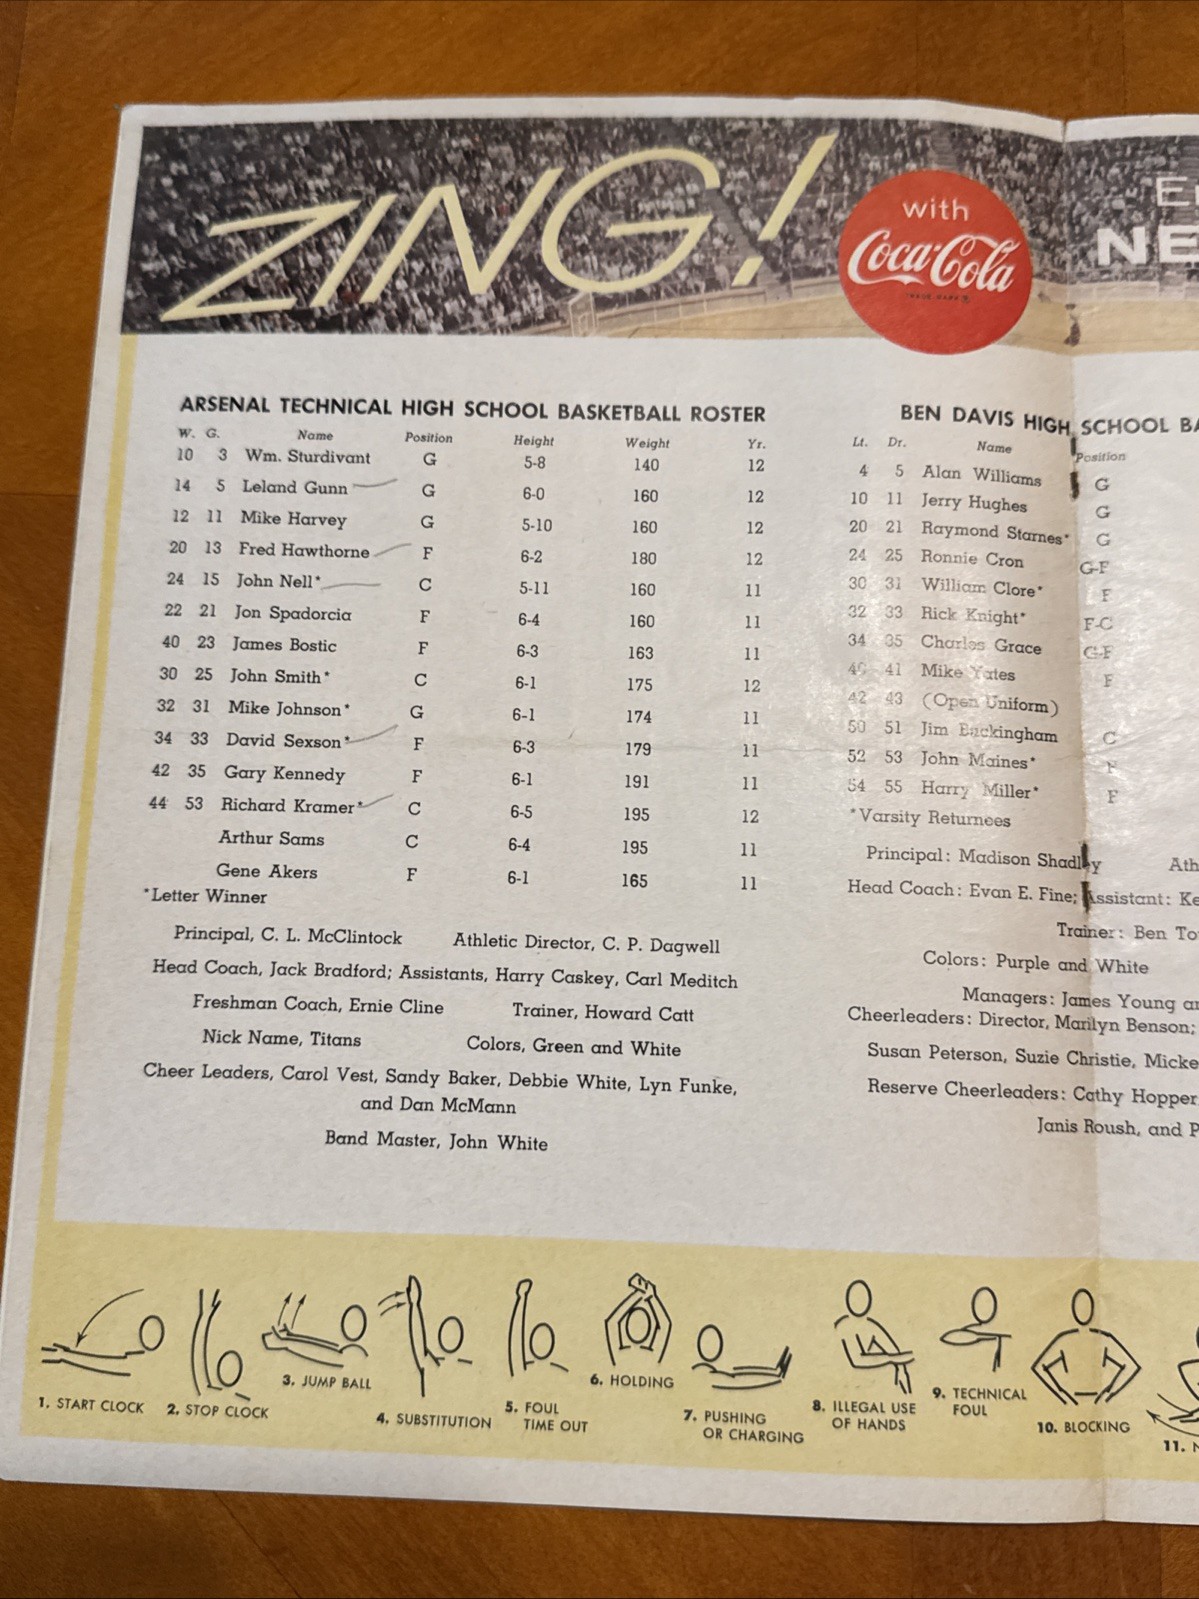 ZING!
with
Coca-Cola
TRADE-MARK ®
NE
ARSENAL TECHNICAL HIGH SCHOOL BASKETBALL ROSTER
W. G. Name Position Height Weight Yr.
10 3 Wm. Sturdivant G 5-8 140 12
14 5 Leland Gunn G 6-0 160 12
12 11 Mike Harvey G 5-10 160 12
20 13 Fred Hawthorne F 6-2 180 12
24 15 John Nell* C 5-11 160 11
22 21 Jon Spadorcia F 6-4 160 11
40 23 James Bostic F 6-3 163 11
30 25 John Smith* C 6-1 175 12
32 31 Mike Johnson* G 6-1 174 11
34 33 David Sexson* F 6-3 179 11
42 35 Gary Kennedy F 6-1 191 11
44 53 Richard Kramer* C 6-5 195 12
Arthur Sams C 6-4 195 11
Gene Akers F 6-1 165 11
*Letter Winner
Principal, C. L. McClintock Athletic Director, C. P. Dagwell
Head Coach, Jack Bradford; Assistants, Harry Caskey, Carl Meditch
Freshman Coach, Ernie Cline Trainer, Howard Catt
Nick Name, Titans Colors, Green and White
Cheer Leaders, Carol Vest, Sandy Baker, Debbie White, Lyn Funke,
and Dan McMann
Band Master, John White
BEN DAVIS HIGH SCHOOL BA
Lt. Dr. Name Position
4 5 Alan Williams G
10 11 Jerry Hughes G
20 21 Raymond Starnes* G
24 25 Ronnie Cron G-F
30 31 William Clore* F
32 33 Rick Knight* F-C
34 35 Charles Grace G-F
40 41 Mike Yates F
42 43 (Open Uniform)
50 51 Jim Buckingham C
52 53 John Maines* F
54 55 Harry Miller* F
*Varsity Returnees
Principal: Madison Shadley Ath
Head Coach: Evan E. Fine; Assistant: Ke
Trainer: Ben To
Colors: Purple and White
Managers: James Young an
Cheerleaders: Director, Marilyn Benson;
Susan Peterson, Suzie Christie, Micke
Reserve Cheerleaders: Cathy Hopper,
Janis Roush, and P
1. START CLOCK
2. STOP CLOCK
3. JUMP BALL
4. SUBSTITUTION
5. FOUL TIME OUT
6. HOLDING
7. PUSHING OR CHARGING
8. ILLEGAL USE OF HANDS
9. TECHNICAL FOUL
10. BLOCKING
11.